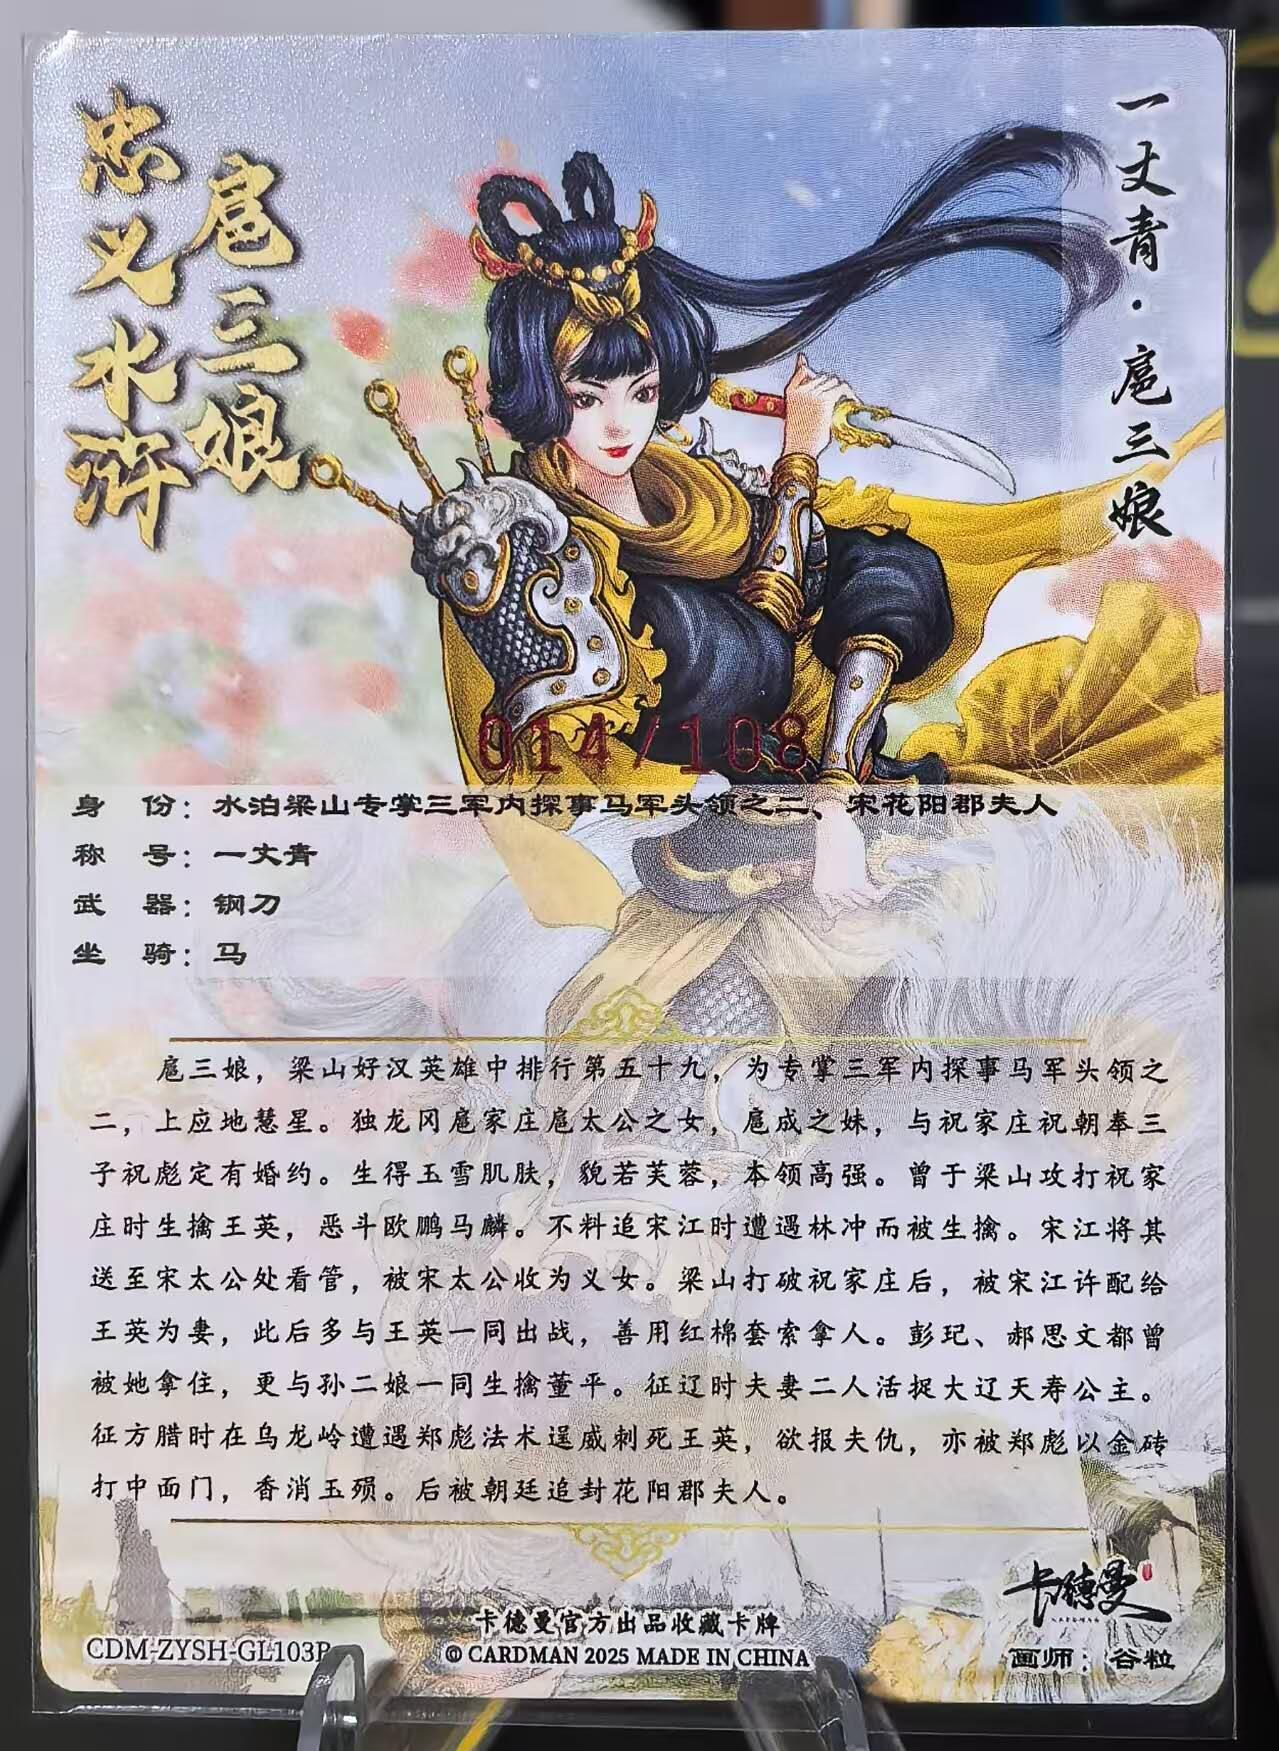 忠义水浒
扈三娘
一丈青·扈三娘
014/108
身 份：水泊梁山专掌三军内探事马军头领之二、宋花阳郡夫人
称 号：一丈青
武 器：钢刀
坐 骑：马
扈三娘，梁山好汉英雄中排行第五十九，为专掌三军内探事马军头领之
二，上应地慧星。独龙冈扈家庄扈太公之女，扈成之妹，与祝家庄祝朝奉三
子祝彪定有婚约。生得玉雪肌肤，貌若芙蓉，本领高强。曾于梁山攻打祝家
庄时生擒王英，恶斗欧鹏马麟。不料追宋江时遭遇林冲而被生擒。宋江将其
送至宋太公处看管，被宋太公收为义女。梁山打破祝家庄后，被宋江许配给
王英为妻，此后多与王英一同出战，善用红棉套索拿人。彭玘、郝思文都曾
被她拿住，更与孙二娘一同生擒董平。征辽时夫妻二人活捉大辽天寿公主。
征方腊时在乌龙岭遭遇郑彪法术逞威刺死王英，欲报夫仇，亦被郑彪以金砖
打中面门，香消玉殒。后被朝廷追封花阳郡夫人。
卡德曼
卡德曼官方出品收藏卡牌
CDM-ZYSH-GL103P
© CARDMAN 2025 MADE IN CHINA
画师：谷粒